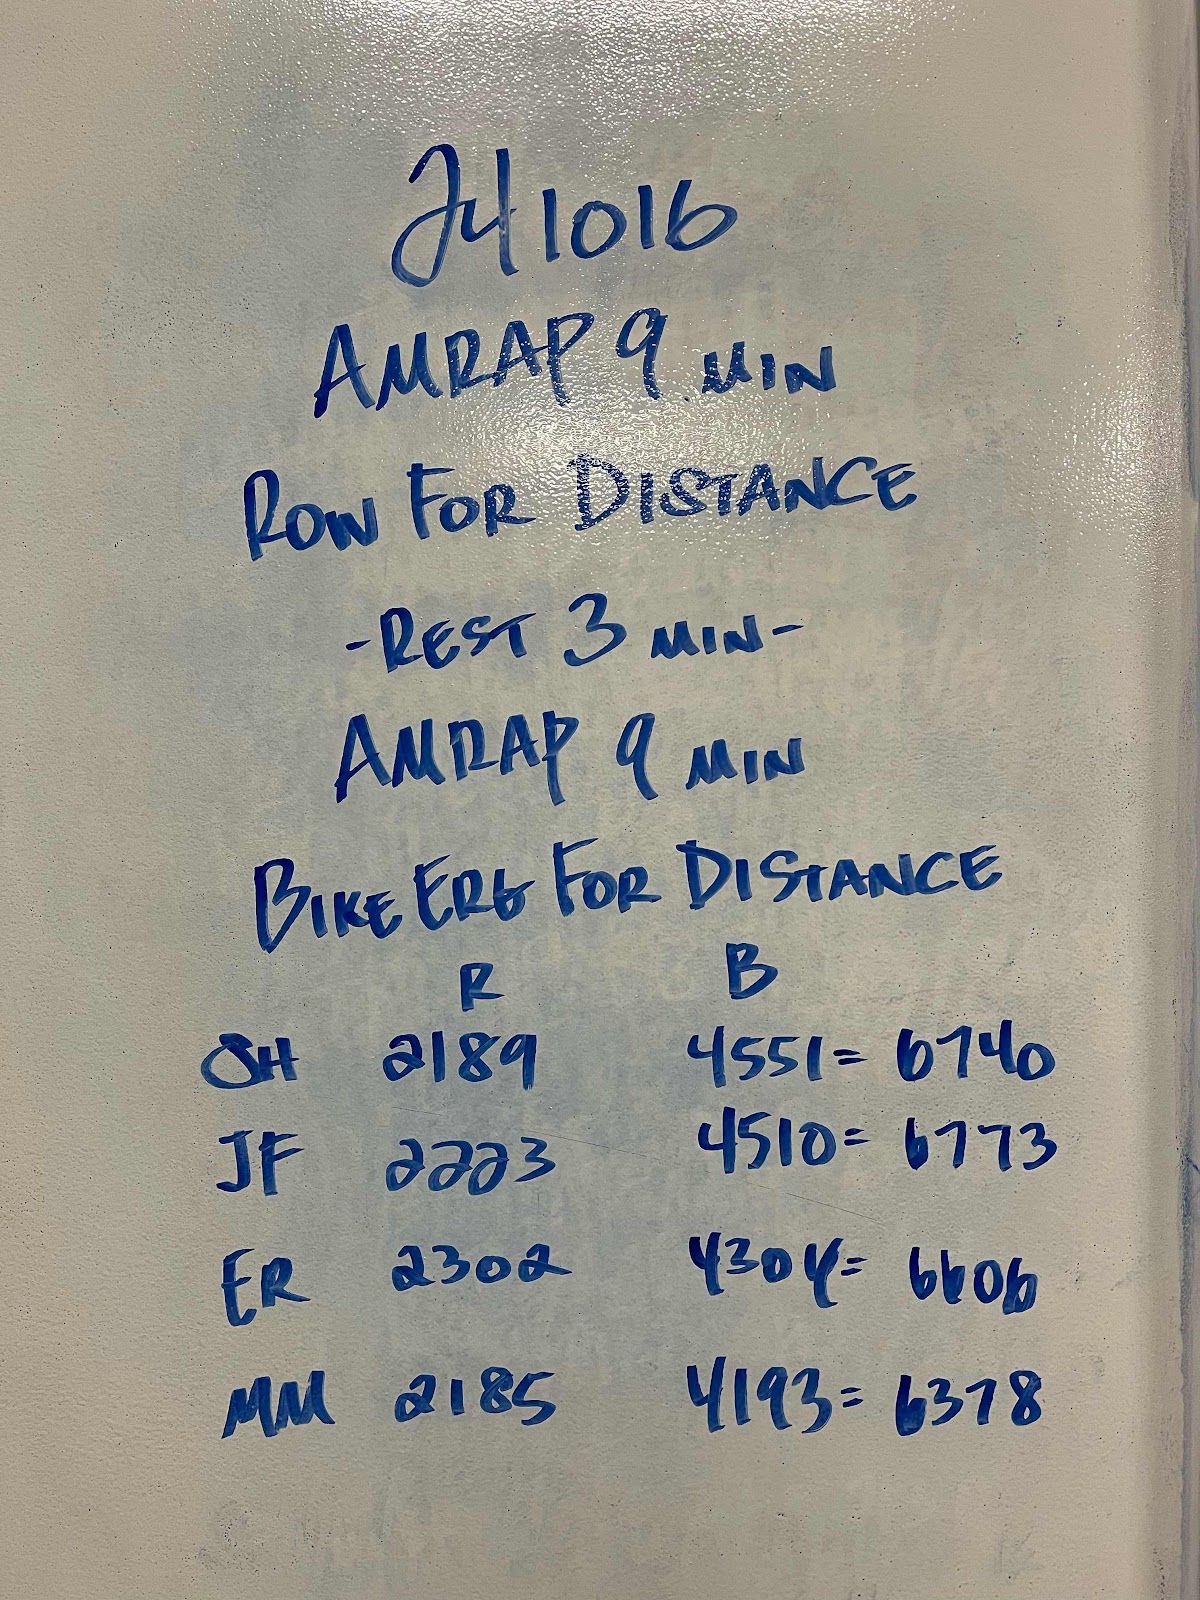 241016
AMRAP 9 MIN
ROW FOR DISTANCE
-REST 3 MIN-
AMRAP 9 MIN
BIKE ERG FOR DISTANCE
R B
SH 2189 4551= 6740
JF 2223 4510= 6773
ER 2302 4304= 6606
MM 2185 4193= 6378